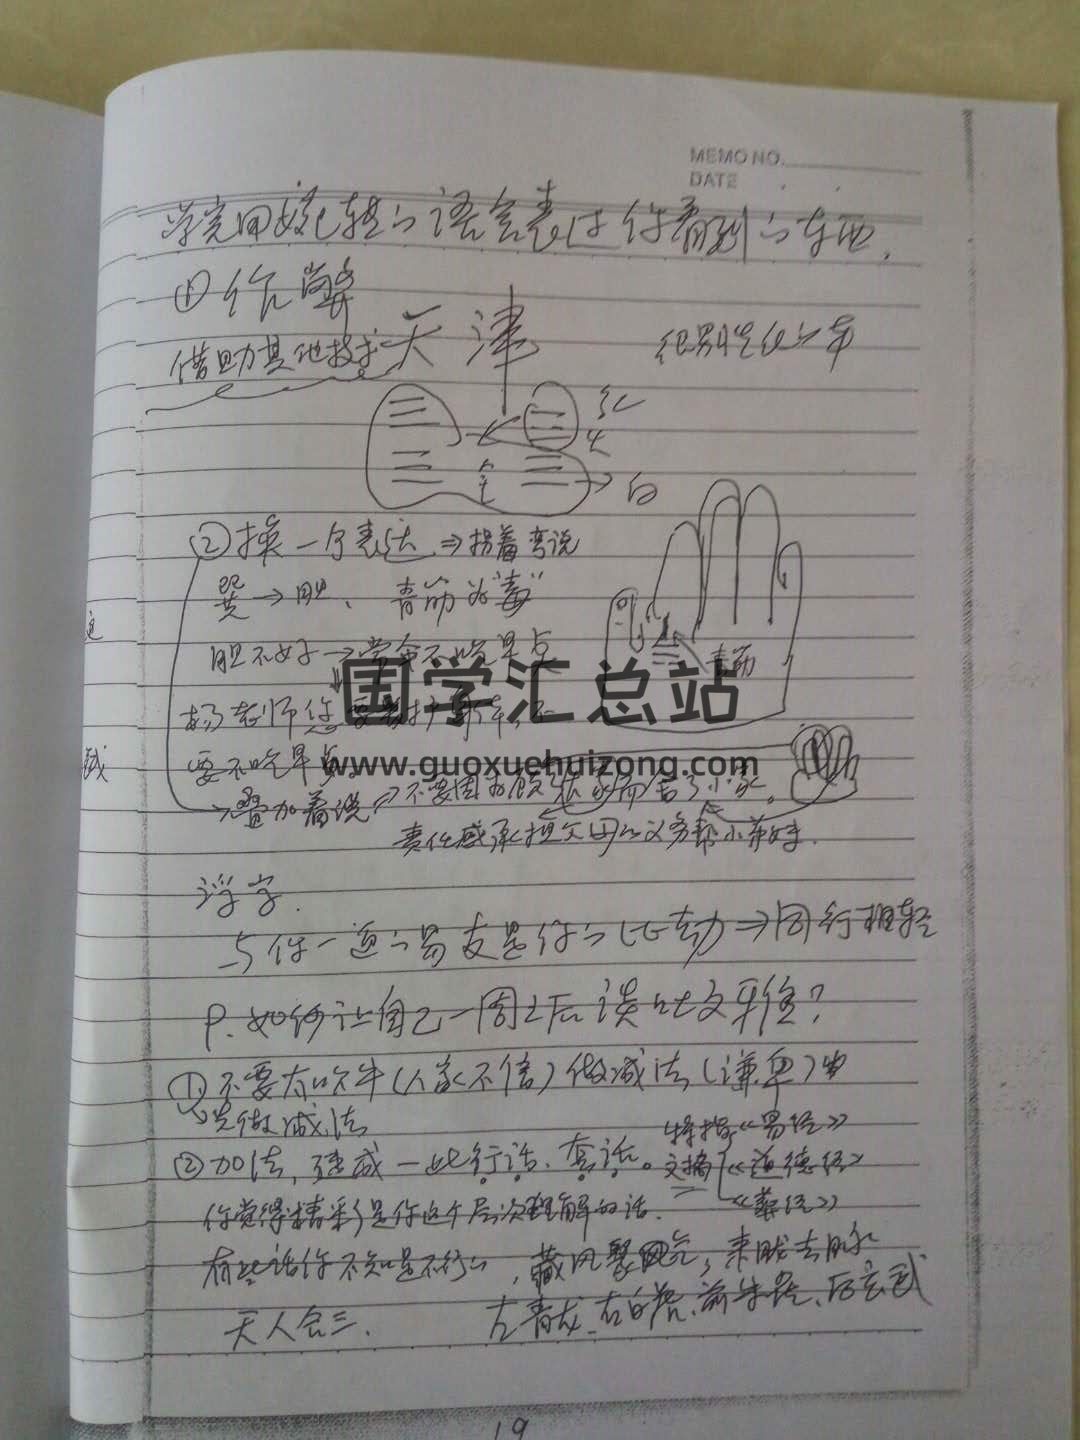 MEMO NO.
DATE
学完用好的语言表达你看到的东西.
①作解
借助其他技术 天津
红
火
→白
②换一个表达⇒拐着弯说
巽→胆、青筋为"毒"
胆不好→常会不吃早点
青筋
国学汇总站
杨老师您要
要不吃早点
www.guoxuehuizong.com
→叠加着说 不要因为顾大家而舍了小家。
责任感承担父母的义务帮小弟妹.
浮字.
与你一道的易友是你的⇒同行相轻
P.如何让自己一周之后谈吐文雅?
①不要有吹牛(人家不信)做减法(谦卑)
先做减法
②加法,建成一些行话、套话。
特指《易经》
文摘《道德经》
《葬经》
你觉得精彩是你这个层次理解的话.
有些话你不知是不行的,藏风聚气,来龙去脉
天人合一. 左青龙、右白虎、前朱雀、后玄武
19